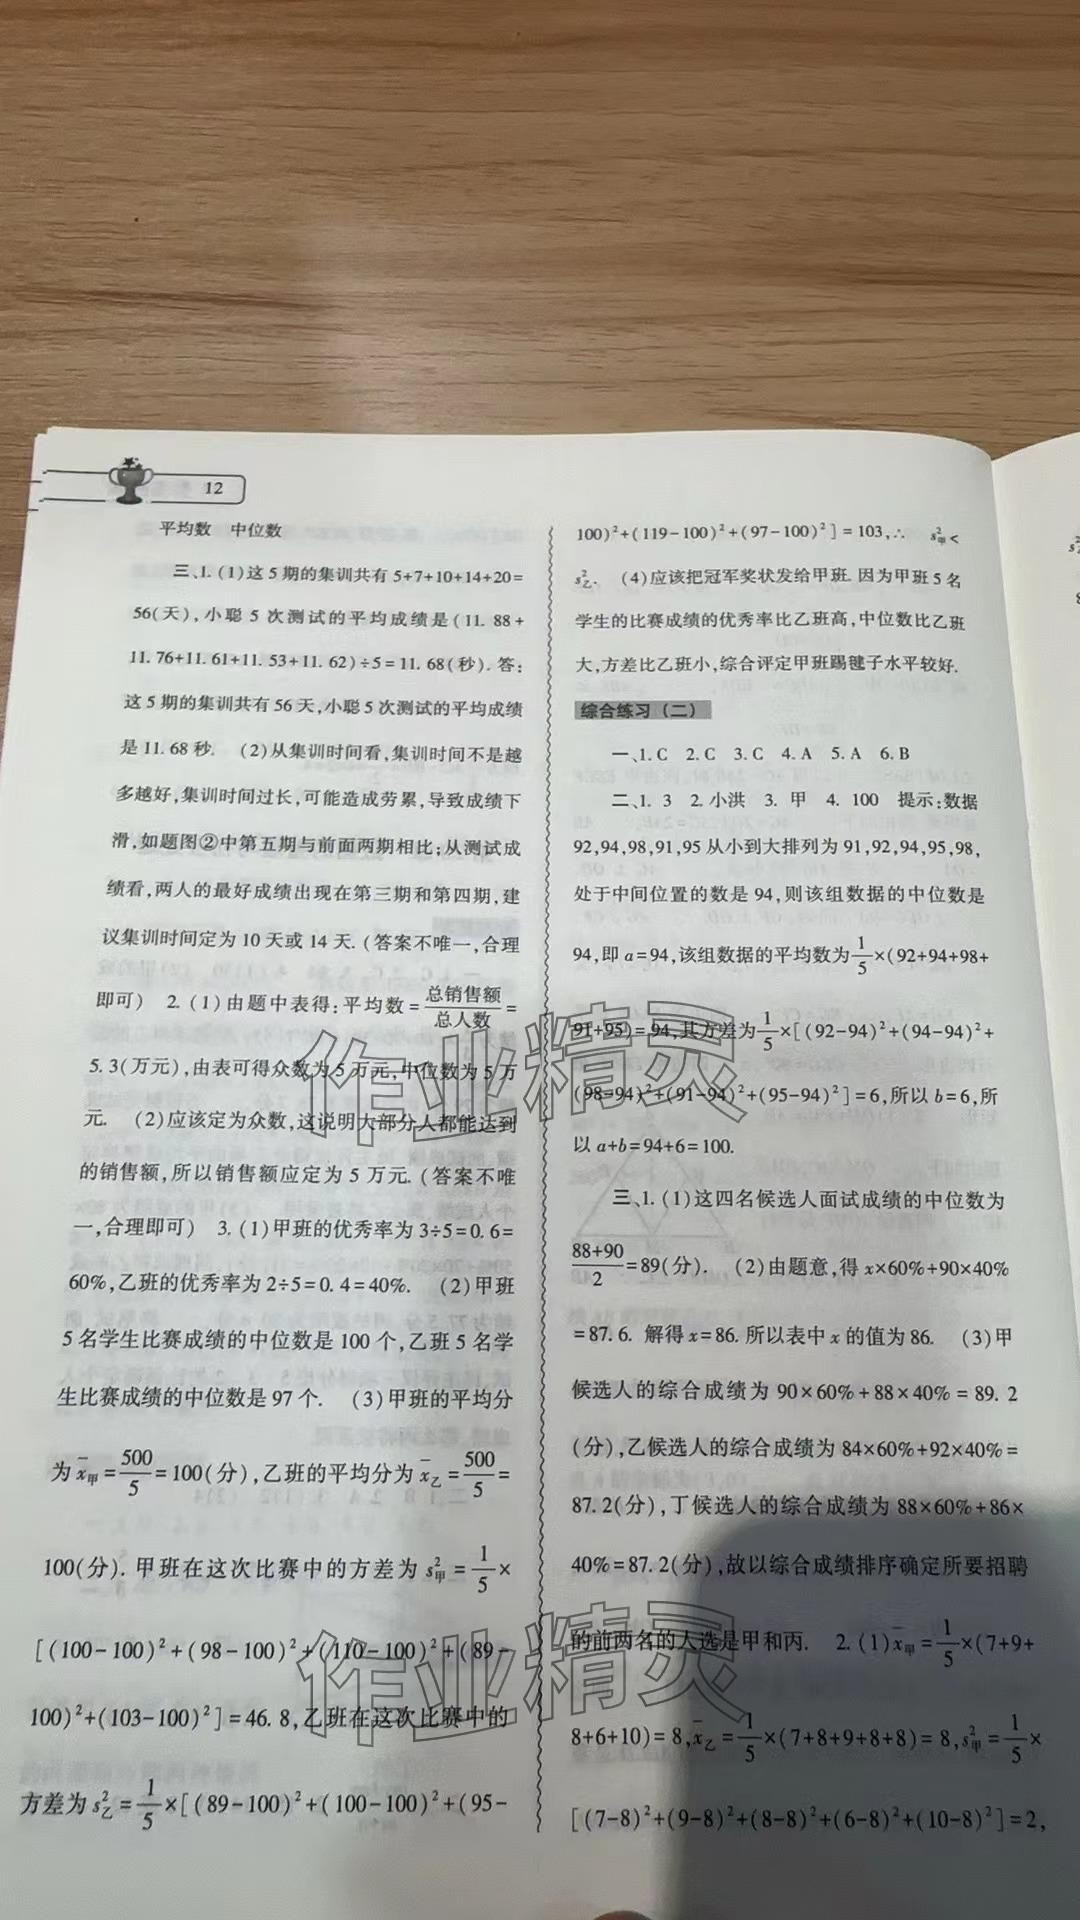 12
平均数 中位数
三、1. (1)这5期的集训共有5+7+10+14+20=
56(天),小聪5次测试的平均成绩是(11.88+
11.76+11.61+11.53+11.62)÷5=11.68(秒).答:
这5期的集训共有56天,小聪5次测试的平均成绩
是11.68秒. (2)从集训时间看,集训时间不是越
多越好,集训时间过长,可能造成劳累,导致成绩下
滑,如题图②中第五期与前面两期相比;从测试成
绩看,两人的最好成绩出现在第三期和第四期,建
议集训时间定为10天或14天.(答案不唯一,合理
即可) 2. (1)由题中表得:平均数=总销售额/总人数=
5.3(万元),由表可得众数为5万元,中位数为5万
元. (2)应该定为众数,这说明大部分人都能达到
的销售额,所以销售额应定为5万元.(答案不唯
一,合理即可) 3. (1)甲班的优秀率为3÷5=0.6=
60%,乙班的优秀率为2÷5=0.4=40%. (2)甲班
5名学生比赛成绩的中位数是100个,乙班5名学
生比赛成绩的中位数是97个. (3)甲班的平均分
为x̄甲=500/5=100(分),乙班的平均分为x̄乙=500/5=
100(分).甲班在这次比赛中的方差为s²甲=1/5×
[(100-100)²+(98-100)²+(110-100)²+(89-
100)²+(103-100)²]=46.8,乙班在这次比赛中的
方差为s²乙=1/5×[(89-100)²+(100-100)²+(95-
100)²+(119-100)²+(97-100)²]=103,∴ s²甲<
s²乙. (4)应该把冠军奖状发给甲班.因为甲班5名
学生的比赛成绩的优秀率比乙班高,中位数比乙班
大,方差比乙班小,综合评定甲班踢毽子水平较好.
综合练习(二)
一、1. C 2. C 3. C 4. A 5. A 6. B
二、1. 3 2. 小洪 3. 甲 4. 100 提示:数据
92,94,98,91,95从小到大排列为91,92,94,95,98,
处于中间位置的数是94,则该组数据的中位数是
94,即a=94,该组数据的平均数为1/5×(92+94+98+
91+95)=94,其方差为1/5×[(92-94)²+(94-94)²+
(98-94)²+(91-94)²+(95-94)²]=6,所以b=6,所
以a+b=94+6=100.
三、1. (1)这四名候选人面试成绩的中位数为
(88+90)/2=89(分). (2)由题意,得x×60%+90×40%
=87.6. 解得x=86.所以表中x的值为86. (3)甲
候选人的综合成绩为90×60%+88×40%=89.2
(分),乙候选人的综合成绩为84×60%+92×40%=
87.2(分),丁候选人的综合成绩为88×60%+86×
40%=87.2(分),故以综合成绩排序确定所要招聘
的前两名的人选是甲和丙. 2. (1)x̄甲=1/5×(7+9+
8+6+10)=8,x̄乙=1/5×(7+8+9+8+8)=8,s²甲=1/5×
[(7-8)²+(9-8)²+(8-8)²+(6-8)²+(10-8)²]=2,
作业精灵
作业精灵